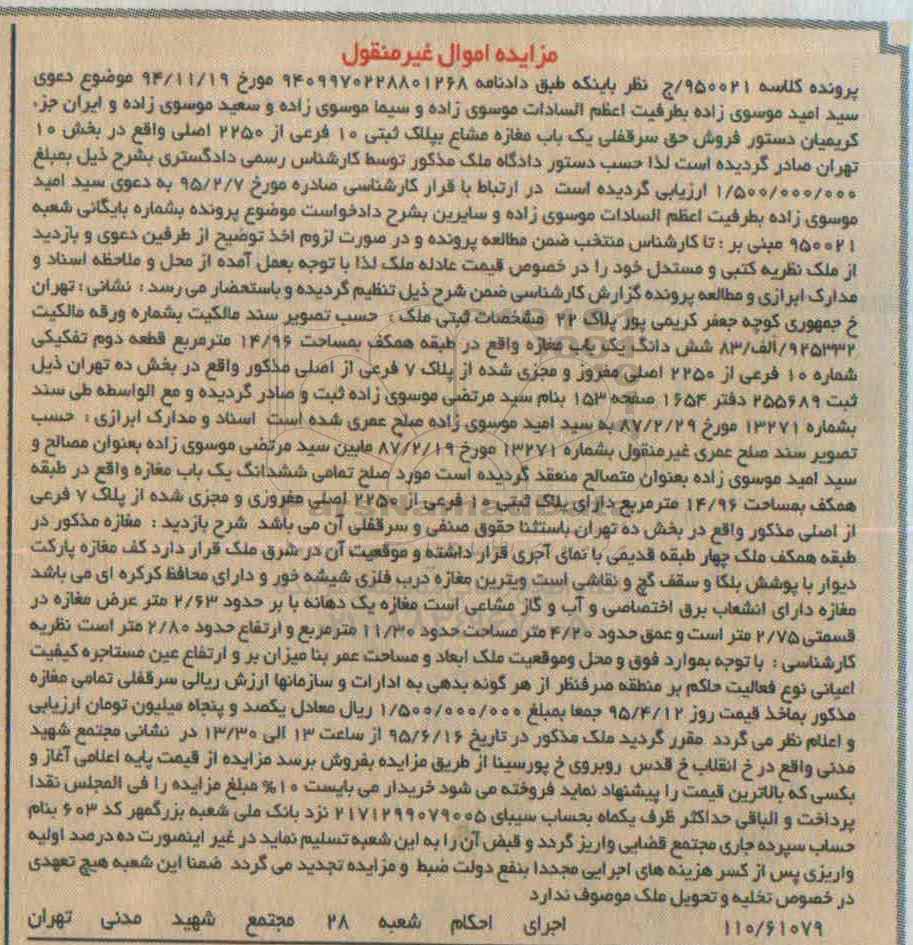 مزایده اموال غیرمنقول
پرونده کلاسه ۹۵۰۰۲۱/ج نظر باینکه طبق دادنامه ۹۴۰۹۹۷۰۲۲۸۸۰۱۲۶۸ مورخ ۹۴/۱۱/۱۹ موضوع دعوی
سید امید موسوی زاده بطرفیت اعظم السادات موسوی زاده و سیما موسوی زاده و سعید موسوی زاده و ایران جز،
کریمیان دستور فروش حق سرقفلی یک باب مغازه مشاع بپلاک ثبتی ۱۰ فرعی از ۲۲۵۰ اصلی واقع در بخش ۱۰
تهران صادر گردیده است لذا حسب دستور دادگاه ملک مذکور توسط کارشناس رسمی دادگستری بشرح ذیل بمبلغ
۱/۵۰۰/۰۰۰/۰۰۰ ارزیابی گردیده است در ارتباط با قرار کارشناسی صادره مورخ ۹۵/۲/۷ به دعوی سید امید
موسوی زاده بطرفیت اعظم السادات موسوی زاده و سایرین بشرح دادخواست موضوع پرونده بشماره بایگانی شعبه
۹۵۰۰۲۱ مبنی بر : تا کارشناس منتخب ضمن مطالعه پرونده و در صورت لزوم اخذ توضیح از طرفین دعوی و بازدید
از ملک نظریه کتبی و مستدل خود را در خصوص قیمت عادله ملک لذا با توجه بعمل آمده از محل و ملاحظه اسناد و
مدارک ابرازی و مطالعه پرونده گزارش کارشناسی ضمن شرح ذیل تنظیم گردیده و باستحضار می رسد : نشانی : تهران
خ جمهوری کوچه جعفر کریمی پور پلاک ۲۲ مشخصات ثبتی ملک : حسب تصویر سند مالکیت بشماره ورقه مالکیت
۹۲۵۳۳۲/الف/۸۳ شش دانگ یک باب مغازه واقع در طبقه همکف بمساحت ۱۴/۹۶ مترمربع قطعه دوم تفکیکی
شماره ۱۰ فرعی از ۲۲۵۰ اصلی مفروز و مجزی شده از پلاک ۷ فرعی از اصلی مذکور واقع در بخش ده تهران ذیل
ثبت ۲۵۵۶۸۹ دفتر ۱۶۵۴ صفحه ۱۵۳ بنام سید مرتضی موسوی زاده ثبت و صادر گردیده و مع الواسطه طی سند
بشماره ۱۳۲۷۱ مورخ ۸۷/۲/۲۹ به سید امید موسوی زاده صلح عمری شده است اسناد و مدارک ابرازی : حسب
تصویر سند صلح عمری غیرمنقول بشماره ۱۳۲۷۱ مورخ ۸۷/۲/۱۹ مابین سید مرتضی موسوی زاده بعنوان مصالح و
سید امید موسوی زاده بعنوان متصالح منعقد گردیده است مورد صلح تمامی ششدانگ یک باب مغازه واقع در طبقه
همکف بمساحت ۱۴/۹۶ مترمربع دارای پلاک ثبتی ۱۰ فرعی از ۲۲۵۰ اصلی مفروزی و مجزی شده از پلاک ۷ فرعی
از اصلی مذکور واقع در بخش ده تهران باستثنا حقوق صنفی و سرقفلی آن می باشد شرح بازدید : مغازه مذکور در
طبقه همکف ملک چهار طبقه قدیمی با نمای آجری قرار داشته و موقعیت آن در شرق ملک قرار دارد کف مغازه پارکت
دیوار با پوشش بلکا و سقف گچ و نقاشی است ویترین مغازه درب فلزی شیشه خور و دارای محافظ کرکره ای می باشد
مغازه دارای انشعاب برق اختصاصی و آب و گاز مشاعی است مغازه یک دهانه با بر حدود ۲/۶۳ متر عرض مغازه در
قسمتی ۲/۷۵ متر است و عمق حدود ۴/۲۰ متر مساحت حدود ۱۱/۳۰ مترمربع و ارتفاع حدود ۲/۸۰ متر است نظریه
کارشناسی : با توجه بموارد فوق و محل وموقعیت ملک ابعاد و مساحت عمر بنا میزان بر و ارتفاع عین مستاجره کیفیت
اعیانی نوع فعالیت حاکم بر منطقه صرفنظر از هر گونه بدهی به ادارات و سازمانها ارزش ریالی سرقفلی تمامی مغازه
مذکور بماخذ قیمت روز ۹۵/۴/۱۲ جمعا بمبلغ ۱/۵۰۰/۰۰۰/۰۰۰ ریال معادل یکصد و پنجاه میلیون تومان ارزیابی
و اعلام نظر می گردد مقرر گردید ملک مذکور در تاریخ ۹۵/۶/۱۶ از ساعت ۱۳ الی ۱۳/۳۰ در نشانی مجتمع شهید
مدنی واقع در خ انقلاب خ قدس روبروی خ پورسینا از طریق مزایده بفروش برسد مزایده از قیمت پایه اعلامی آغاز و
بکسی که بالاترین قیمت را پیشنهاد نماید فروخته می شود خریدار می بایست ۱۰% مبلغ مزایده را فی المجلس نقدا
پرداخت و الباقی حداکثر ظرف یکماه بحساب سیبای ۲۱۷۱۲۹۹۰۷۹۰۰۵ نزد بانک ملی شعبه بزرگمهر کد ۶۰۳ بنام
حساب سپرده جاری مجتمع قضایی واریز گردد و قبض آن را به این شعبه تسلیم نماید در غیر اینصورت ده درصد اولیه
واریزی پس از کسر هزینه های اجرایی مجددا بنفع دولت ضبط و مزایده تجدید می گردد ضمنا این شعبه هیچ تعهدی
در خصوص تخلیه و تحویل ملک موصوف ندارد
۱۱۰/۶۱۰۷۹ اجرای احکام شعبه ۲۸ مجتمع شهید مدنی تهران